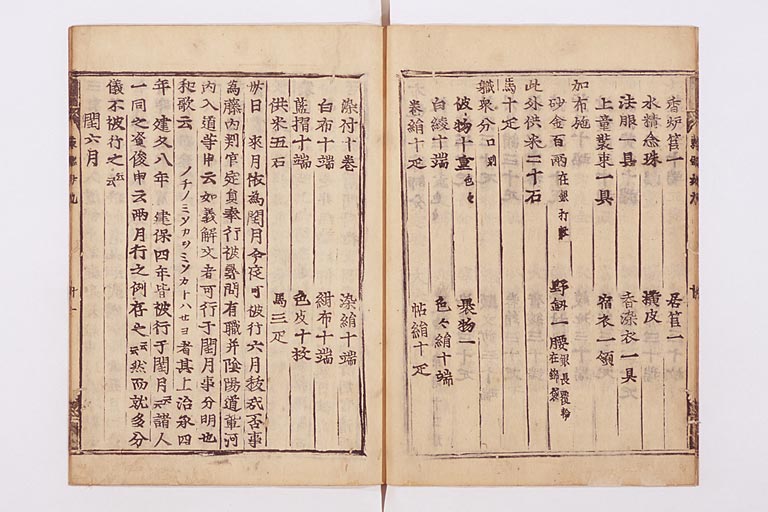 香炉筥一　居筥一
水精念珠　横皮
法服一具　香染衣一具
上童装束一具　宿衣一領
加布施
砂金百両在銀打敷　野釼一腰銀長覆輪在錦袋
此外供米二十石
馬十疋
職衆分口別
被物十重色々　裹物一
白綾十端　色々絹十端
巻絹十疋　帖絹十疋
染付十巻　染絹十端
白布十端　紺布十端
藍摺十端　色皮十枚
供米五石　馬三疋
廿日　来月依為閏月今夜可被行六月祓哉否事
為隣内判官定員奉行被尋問有職并陰陽道輩河
内入道等申云如義解文者可行于閏月事分明也
和歌云　ノチノミソカヲミソカトハセヨ者其上治承四
年　建久八年　建保四年皆被行于閏月云々諸人
一同之資俊申云両月行之例存之云々然而就多分
儀不被行之云々
閏六月